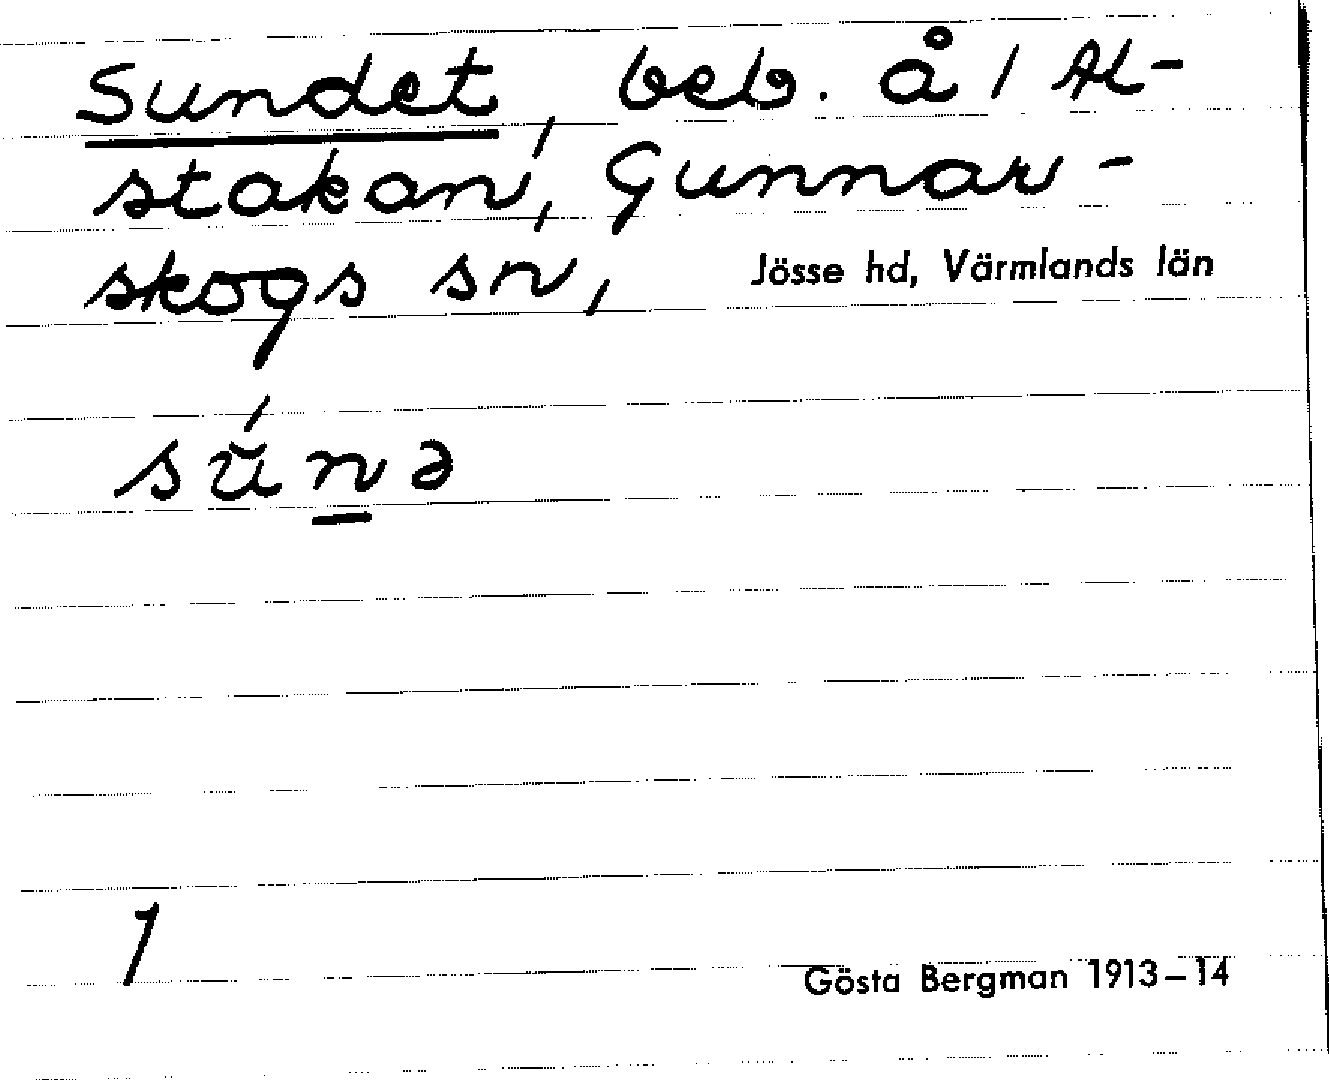 Sundet, beb. å 1 Al-
stakan, Gunnar-
skogs sn, Jösse hd, Värmlands län
sŭ́n̲ə
1
Gösta Bergman 1913–14